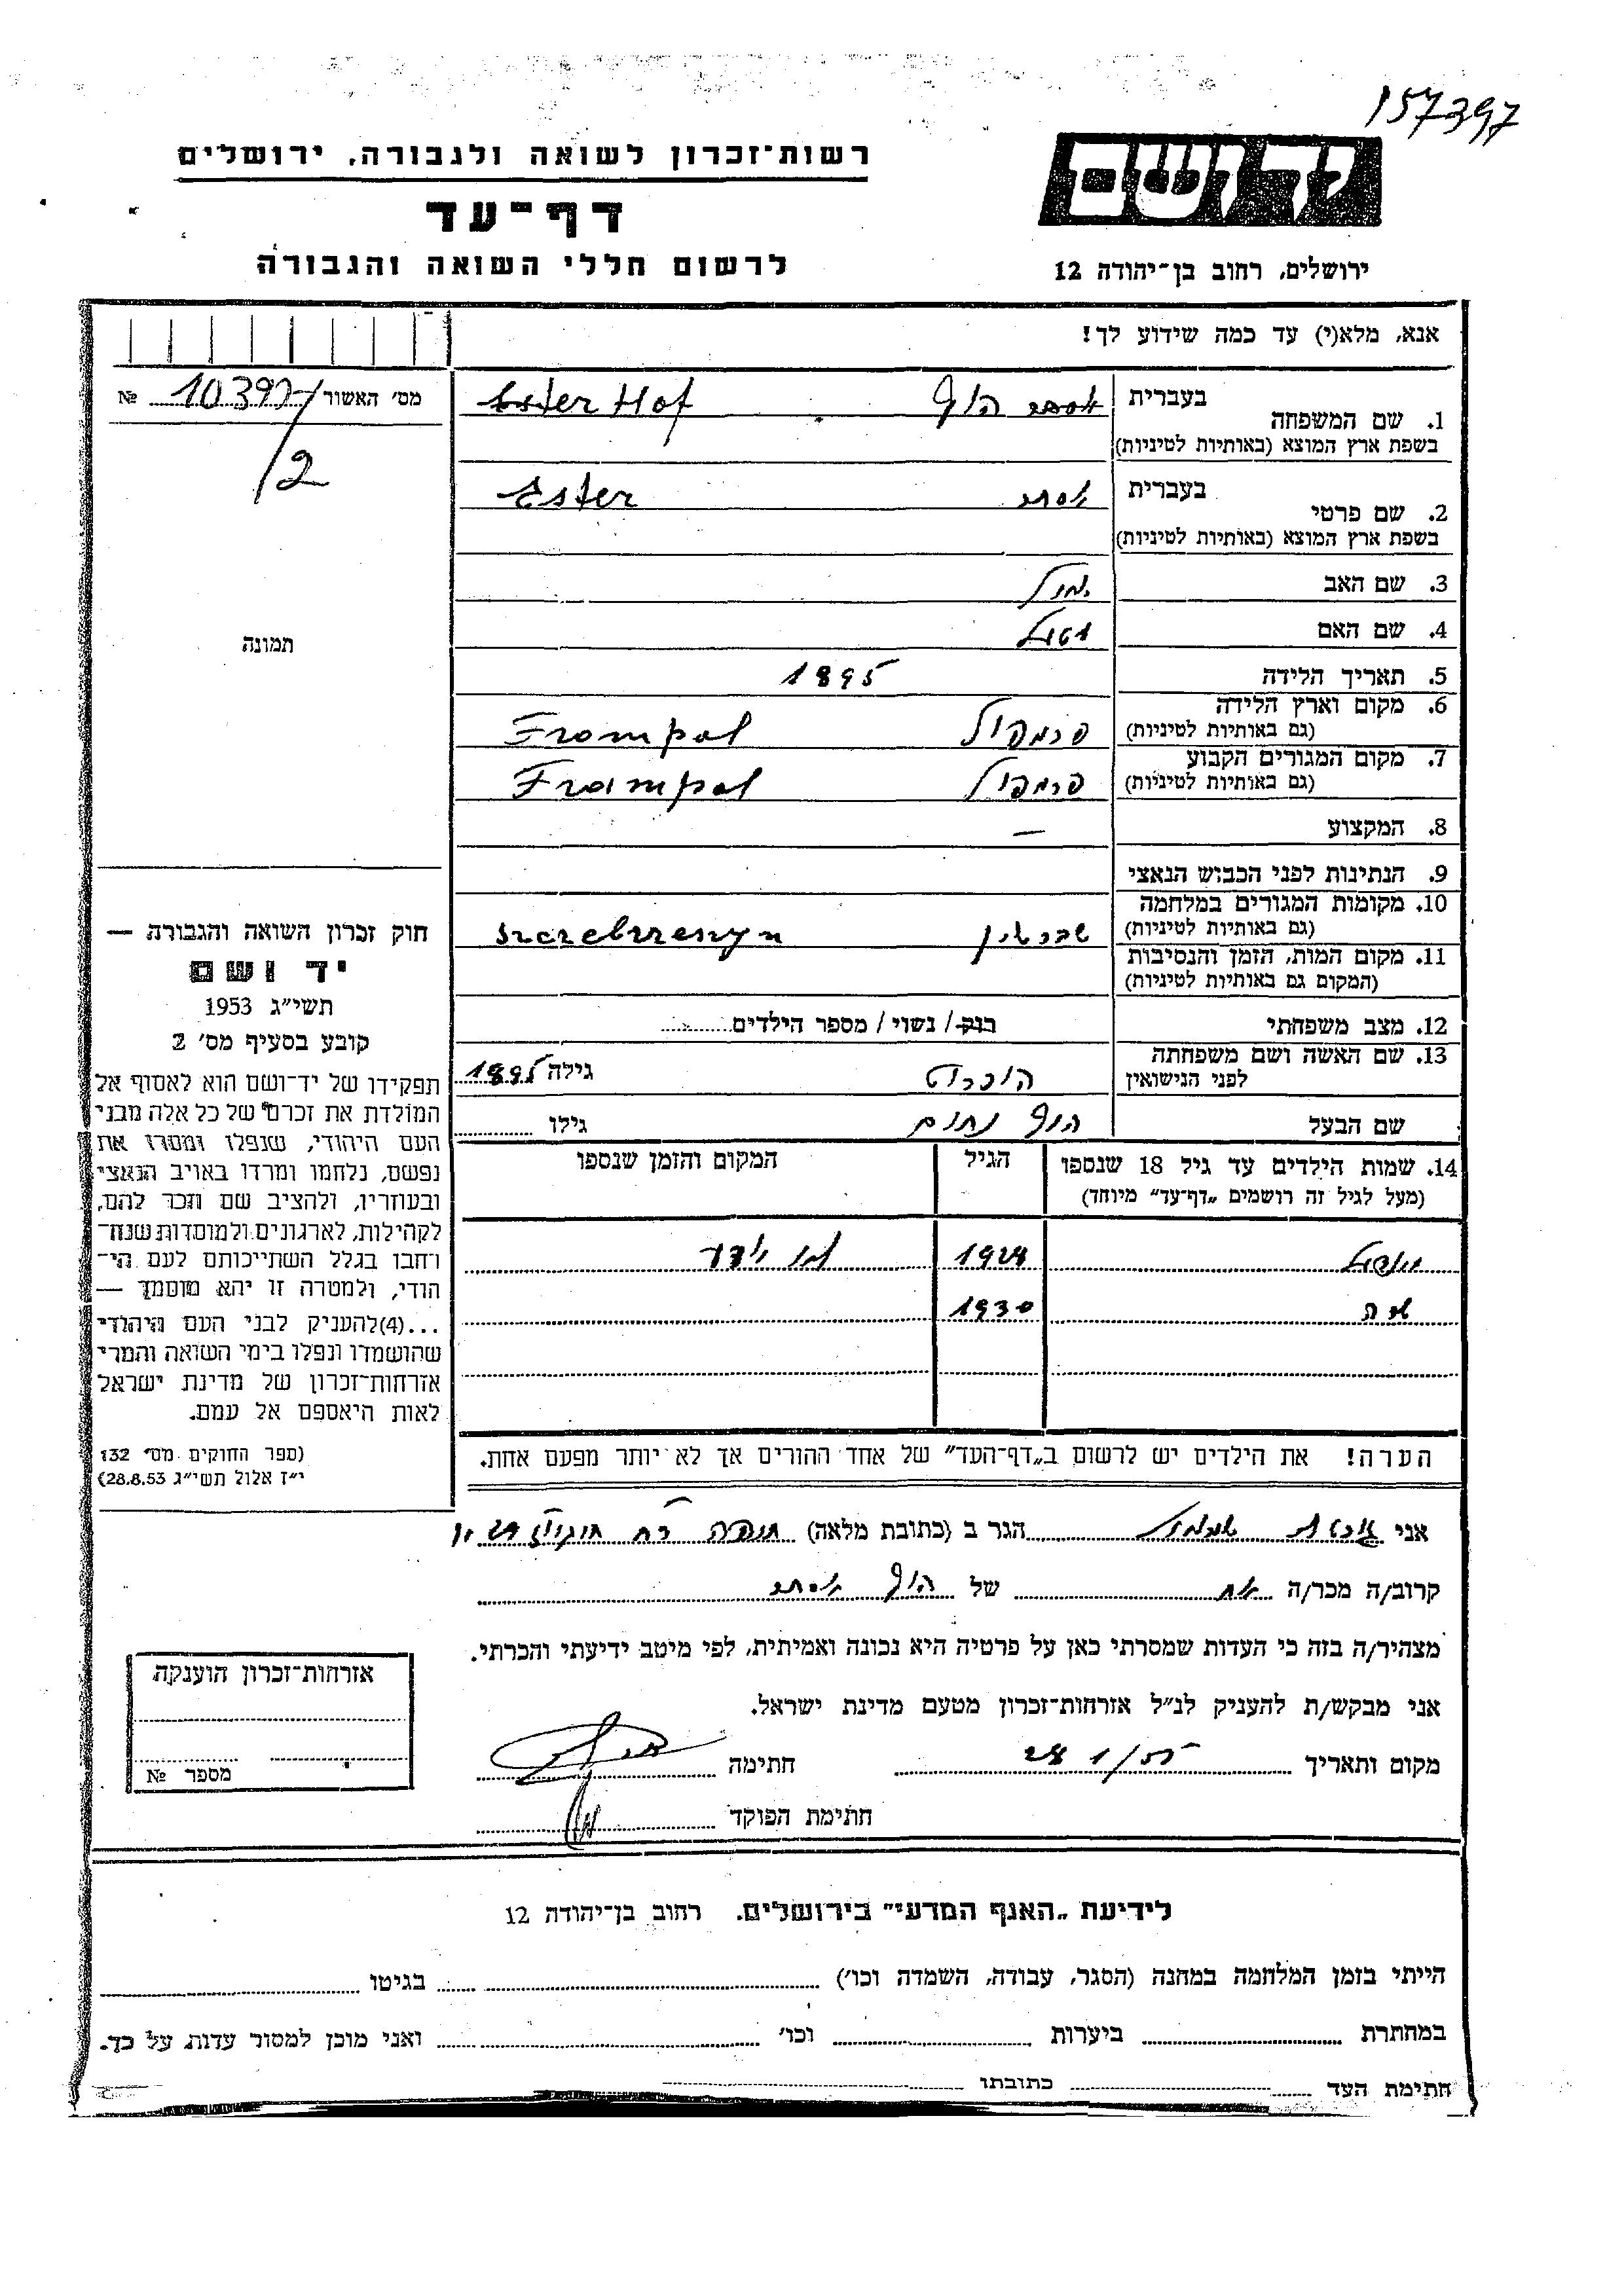 157397
יד ושם
רשות־זכרון לשואה ולגבורה, ירושלים
דף־עד
לרשום חללי השואה והגבורה
ירושלים, רחוב בן־יהודה 12
אנא, מלא(י) עד כמה שידוע לך!
מס' האשור 10397 №
/2
תמונה
1. שם המשפחה בעברית אסתר הוף Ester Hof
בשפת ארץ המוצא (באותיות לטיניות)
2. שם פרטי בעברית אסתר Ester
בשפת ארץ המוצא (באותיות לטיניות)
3. שם האב
4. שם האם
5. תאריך הלידה 1895
6. מקום וארץ הלידה פרמפול Frompol
(גם באותיות לטיניות)
7. מקום המגורים הקבוע פרמפול Frampol
(גם באותיות לטיניות)
8. המקצוע —
9. הנתינות לפני הכבוש הנאצי
10. מקומות המגורים במלחמה
(גם באותיות לטיניות) שברשין Szczebrzeszyn
11. מקום המות, הזמן והנסיבות
(המקום גם באותיות לטיניות)
12. מצב משפחתי רווק / נשוי / מספר הילדים
13. שם האשה ושם משפחתה
לפני הנישואין גילה 1895
שם הבעל הוף נחום גילו
14. שמות הילדים עד גיל 18 שנספו הגיל המקום והזמן שנספו
(מעל לגיל זה רושמים „דף־עד" מיוחד)
1924 לא ידוע
1930
הערה! את הילדים יש לרשום ב„דף־העד" של אחד ההורים אך לא יותר מפעם אחת.
חוק זכרון השואה והגבורה —
יד ושם
תשי"ג 1953
קובע בסעיף מס' 2
תפקידו של יד־ושם הוא לאסוף אל
המולדת את זכרם של כל אלה מבני
העם היהודי, שנפלו ומסרו את
נפשם, נלחמו ומרדו באויב הנאצי
ובעוזריו, ולהציב שם וזכר להם,
לקהילות, לארגונים ולמוסדות שנח־
רחבו בגלל השתייכותם לעם הי־
הודי, ולמטרה זו יהא מוסמך —
...(4)להעניק לבני העם היהודי
שהושמדו ונפלו בימי השואה והמרי
אזרחות־זכרון של מדינת ישראל
לאות היאספם אל עמם.
(ספר החוקים מס' 132
י"ז אלול תשי"ג 28.8.53)
אני הגר ב (כתובת מלאה)
קרוב/ה מכר/ה אח של הוף אסתר
מצהיר/ה בזה כי העדות שמסרתי כאן על פרטיה היא נכונה ואמיתית, לפי מיטב ידיעתי והכרתי.
אני מבקש/ת להעניק לנ"ל אזרחות־זכרון מטעם מדינת ישראל.
מקום ותאריך חתימה
חתימת הפוקד
אזרחות־זכרון הוענקה
מספר №
לידיעת „האגף המדעי" בירושלים. רחוב בן־יהודה 12
הייתי בזמן המלחמה במחנה (הסגר, עבודה, השמדה וכו') בגיטו
במחתרת ביערות וכו' ואני מוכן למסור עדות על כך.
חתימת העד כתובתו